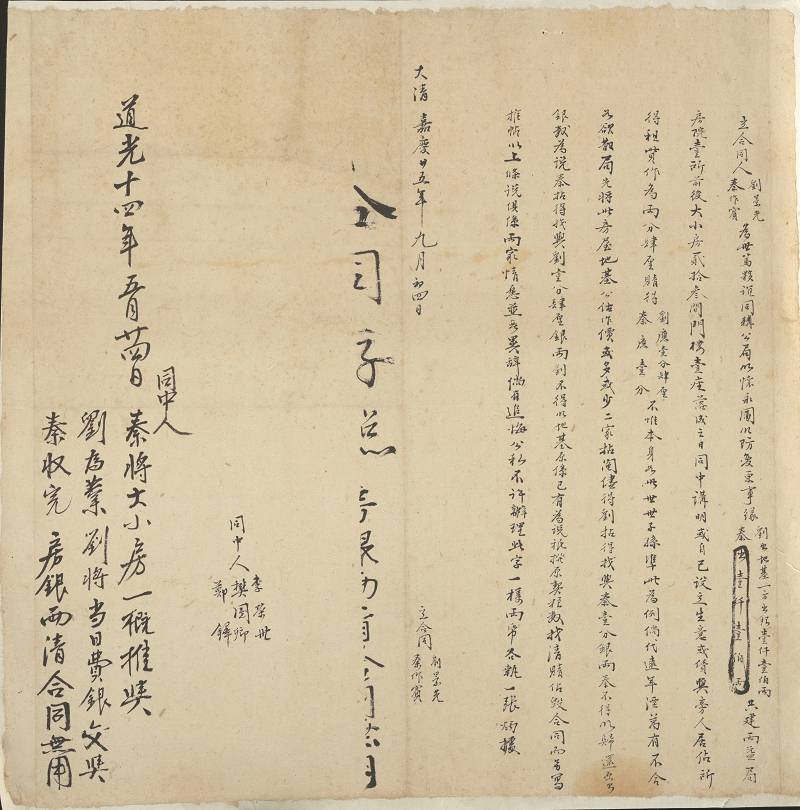 立合同人劉景光秦作賓為世篤親誼同購公局以憑永圖以防更事緣劉出地基一方出銀壹仟壹佰兩秦出壹仟壹佰兩共建兩益局
房院壹所前後大小房貳拾叁間門樓壹座落成之日同中講明或自己设立生意或賃與旁人居佔所
得租賃作為兩分肆厘賸得劉應壹分肆厘秦應壹分不惟本身如此世世子孫準此為例倘代遠年湮萬有不合
欲散局先將此房屋地基公估作價或多或少二家拈鬮儻得劉拈得找與秦壹分銀兩秦不得以歸還出
銀数為說秦拈得找與劉壹分肆厘銀兩劉不得以地基原係己有為說祇按原契找清賸佔毀合同而另寫
推帖以上條說俱係兩家情愿並無異辞倘有追悔公私不許辦理此字一樣兩帋各執一張炳據
大清嘉慶廿五年九月初四日
立合同劉景光秦作賓
同中人李榮世樊國卿鄭鐸
道光十四年
同中人
秦將大小房一概推與
劉為業劉將当日費銀交與
秦收完房銀兩清合同無用